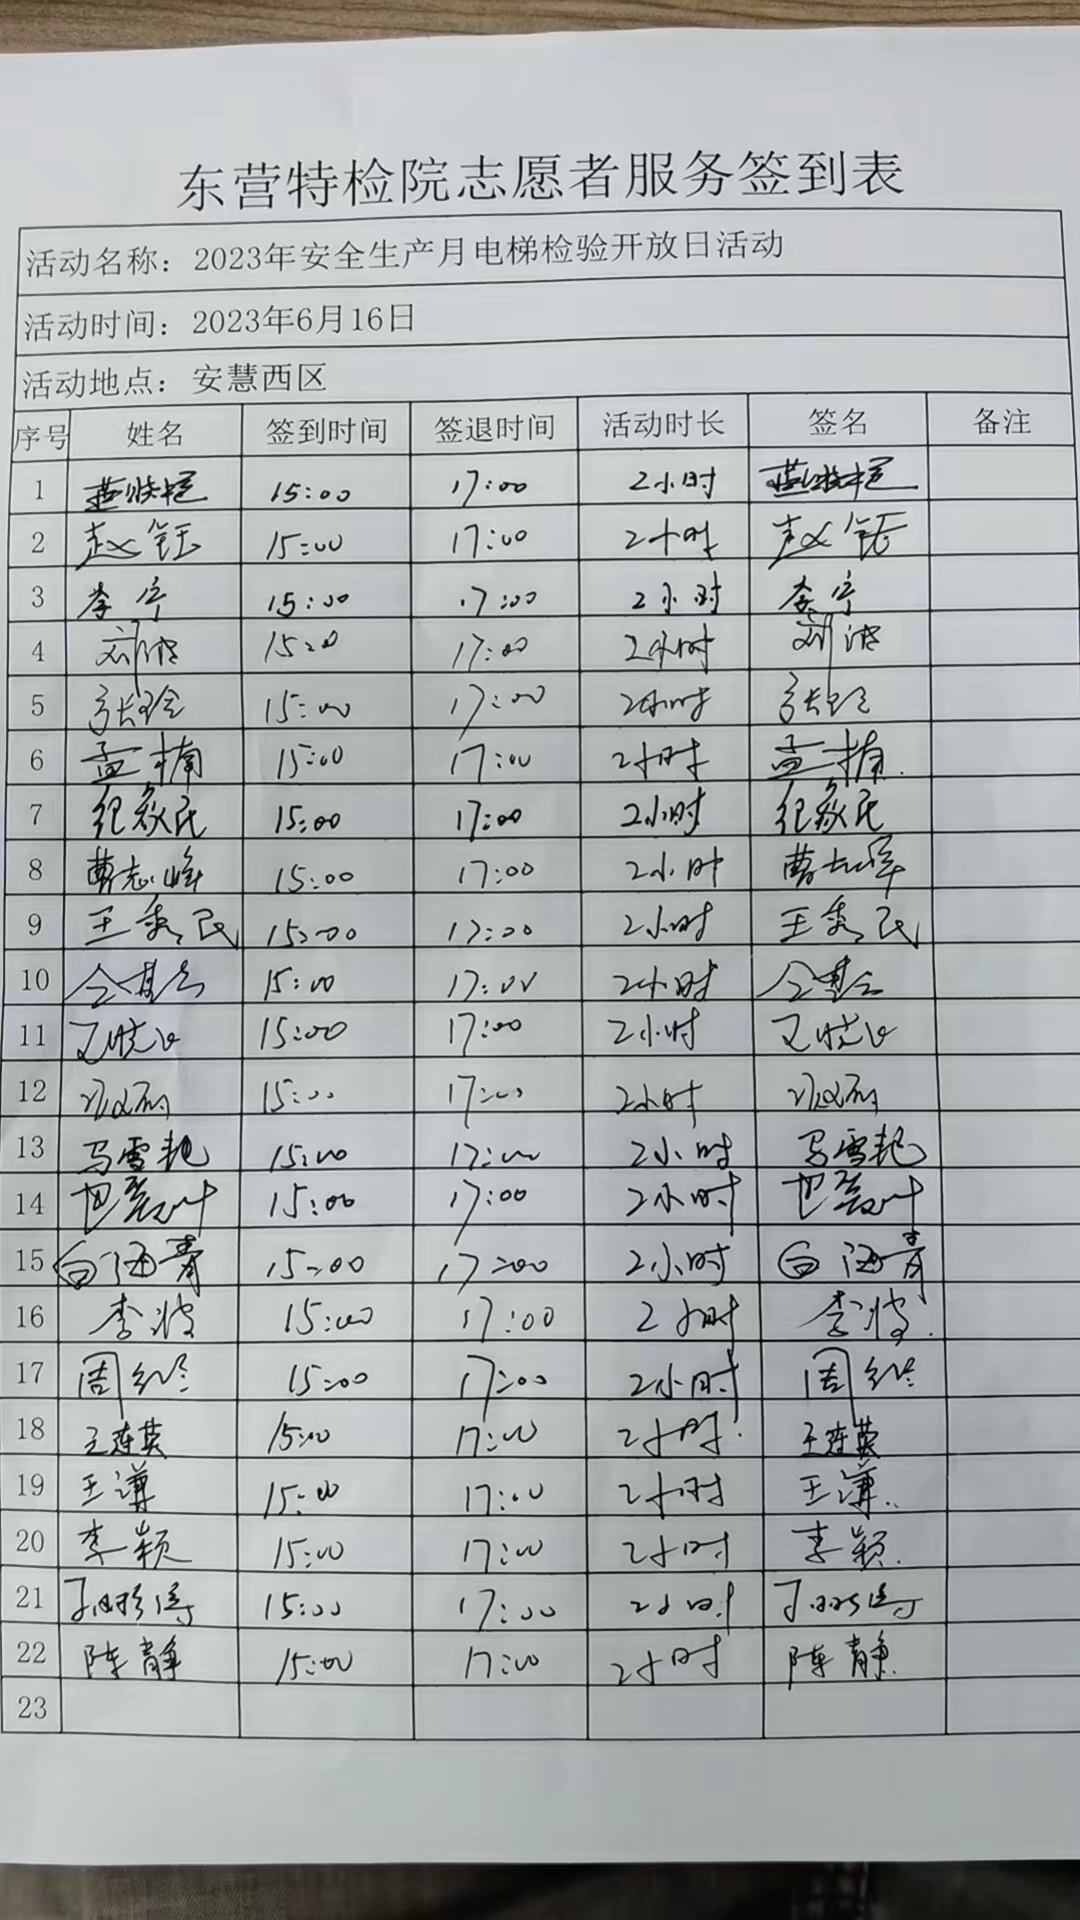 东营特检院志愿者服务签到表
活动名称：2023年安全生产月电梯检验开放日活动
活动时间：2023年6月16日
活动地点：安慧西区
序号 姓名 签到时间 签退时间 活动时长 签名 备注
1 15:00 17:00 2小时
2 赵钰 15:00 17:00 2小时 赵钰
3 李宁 15:00 17:00 2小时 李宁
4 刘波 15:00 17:00 2小时 刘波
5 张玲 15:00 17:00 2小时 张玲
6 孟楠 15:00 17:00 2小时 孟楠
7 纪效民 15:00 17:00 2小时 纪效民
8 曹志峰 15:00 17:00 2小时 曹志峰
9 王秀民 15:00 17:00 2小时 王秀民
10 15:00 17:00 2小时
11 15:00 17:00 2小时
12 15:00 17:00 2小时
13 马雪艳 15:00 17:00 2小时 马雪艳
14 15:00 17:00 2小时
15 白海青 15:00 17:00 2小时 白海青
16 李波 15:00 17:00 2小时 李波
17 周玲 15:00 17:00 2小时 周玲
18 王连英 15:00 17:00 2小时 王连英
19 王谦 15:00 17:00 2小时 王谦
20 李颖 15:00 17:00 2小时 李颖
21 15:00 17:00 2小时
22 陈静 15:00 17:00 2小时 陈静
23